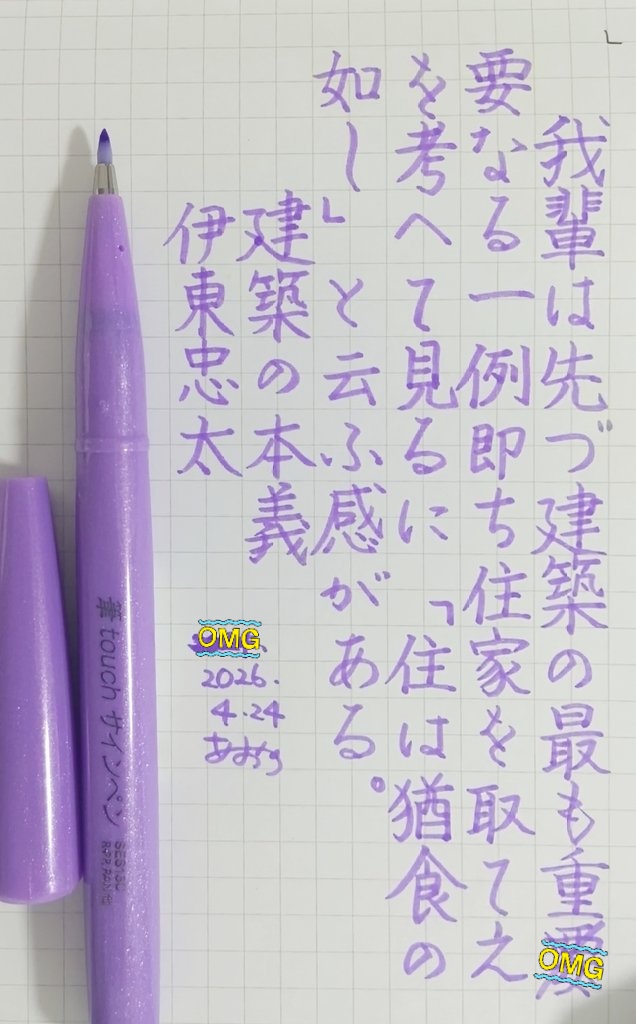 我輩は先づ建築の最も重
要なる一例即ち住家を取てえ
を考へて見るに「住は猶食の
如し」と云ふ感がある。
建築の本義
伊東忠太
OMG
OMG
2026.
4.24
あおぞら
筆touchサインペン
SES15C